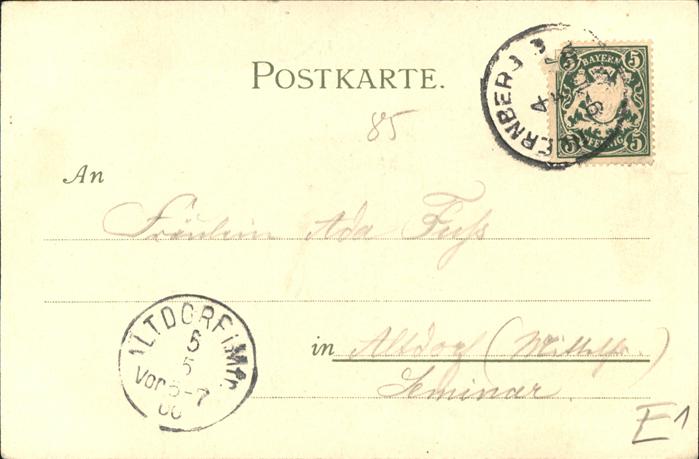 POSTKARTE.
5 BAYERN 5
5 PFENNIG 5
ERNBERG
4
85
An
Fräulein Ada Fuss
in Altdorf (Mittelfr.)
Seminar.
ALTDORF (MFR.
6
5
Vor 5-7
00
E1